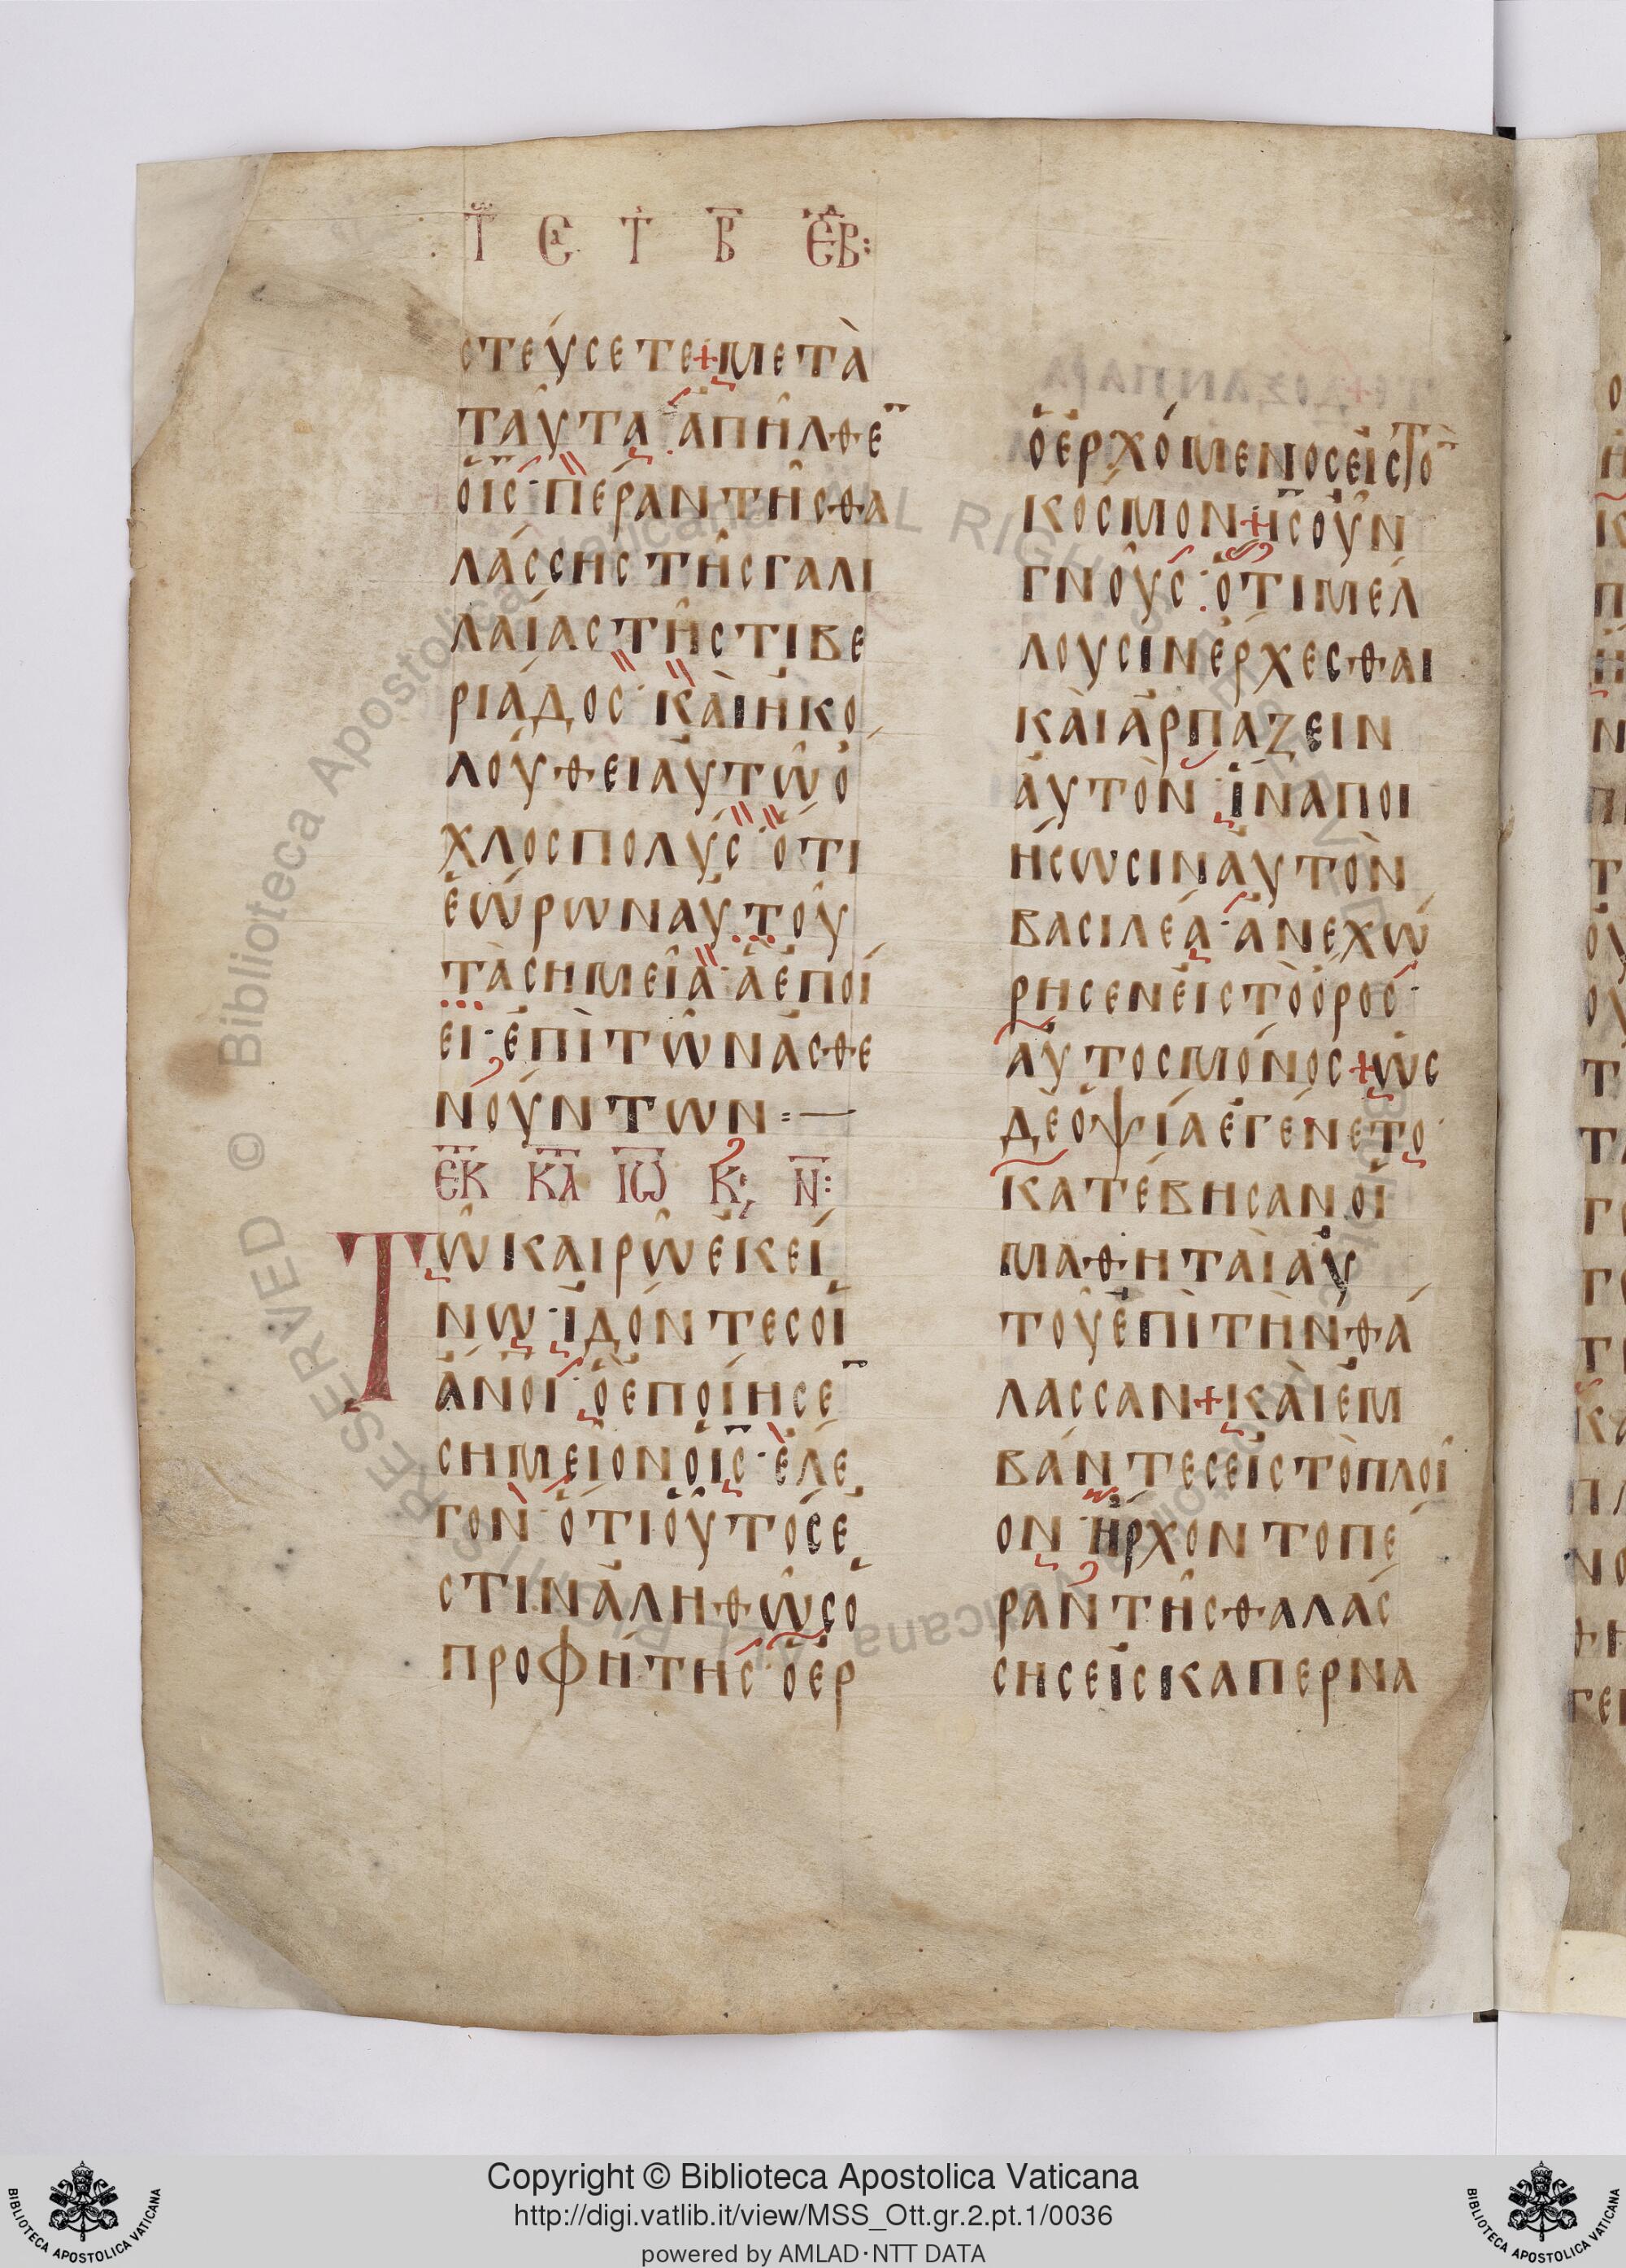 Τ Ϲ Τ Β ΕΒ:
ϹΤΕΎϹΕΤΕ+ΜΕΤᾺ
ΤΑῦΤΑ ἈΠῆΛΘΕ̄
Ὁ ΙϹ̄· ΠΈΡΑΝΤῆϹΘΑ
ΛΆϹϹΗϹΤῆϹΓΑΛΙ
ΛΑΊΑϹΤῆϹΤΙΒΕ
ΡΙΆΔΟϹ· ΚΑῚἨΚΟ
ΛΟΎΘΕΙΑΥΤῶὈ
ΧΛΟϹΠΟΛΎϹ· ὍΤΙ
ἘΏΡΩΝΑΥΤΟῦ
ΤᾺϹΗΜΕῖΑ· ἍἘΠΟΊ
ΕΙ· ἘΠῚΤῶΝἈϹΘΕ
ΝΟΎΝΤΩΝ:—
ἘΚ ΚΛ ΙΩ Κ; Ν̄:
ΤῶΚΑΙΡῶἘΚΕΊ
ΝΩ· ἸΔΌΝΤΕϹΟἹ
ἌΝΟΙ· ὉΕΠΟΊΗϹΕ̄
ϹΗΜΕῖΟΝΟΙϹ̄· ἜΛΕ
ΓΟΝ· ὍΤΙΟὟΤΌϹΕ
ϹΤΙΝἈΛΗΘῶϹΟ
ΠΡΟΦΉΤΗϹ· ὉἘΡ
ὉἘΡΧΌΜΕΝΟϹΕἸϹΤΟ̄
ΚΌϹΜΟΝ+ΙϹ̄ΟῦΝ
ΓΝΟῪϹ· ὍΤΙΜΈΛ
ΛΟΥϹΙΝἜΡΧΕϹΘΑΙ
ΚΑῚἉΡΠΆΖΕΙΝ
ἈΥΤῸΝ ἽΝΑΠΟΙ
ΉϹΩϹΙΝἈΥΤῸΝ
ΒΑϹΙΛΈΑ· ἈΝΕΧΏ
ΡΗϹΕΝΕἸϹΤῸὌΡΟϹ·
ἈΥΤΟϹΜΌΝΟϹ+ὩϹ
ΔῈΟΨΊΑἘΓΈΝΕΤΟ·
ΚΑΤΈΒΗϹΑΝΟἹ
ΜΑΘΗΤΑῚΑΥ
ΤΟῦἘΠῚΤῊΝΘΆ
ΛΑϹϹΑΝ+ΚΑῚἘΜ
ΒΆΝΤΕϹΕἸϹΤῸΠΛΟῖ
ΟΝ· ἬΡΧΟΝΤΟΠΈ
ΡΑΝΤῆϹΘΑΛΆϹ
ϹΗϹΕἸϹΚΑΠΕΡΝΑ
Copyright © Biblioteca Apostolica Vaticana
http://digi.vatlib.it/view/MSS_Ott.gr.2.pt.1/0036
powered by AMLAD·NTT DATA
BIBLIOTECA APOSTOLICA VATICANA
BIBLIOTECA APOSTOLICA VATICANA